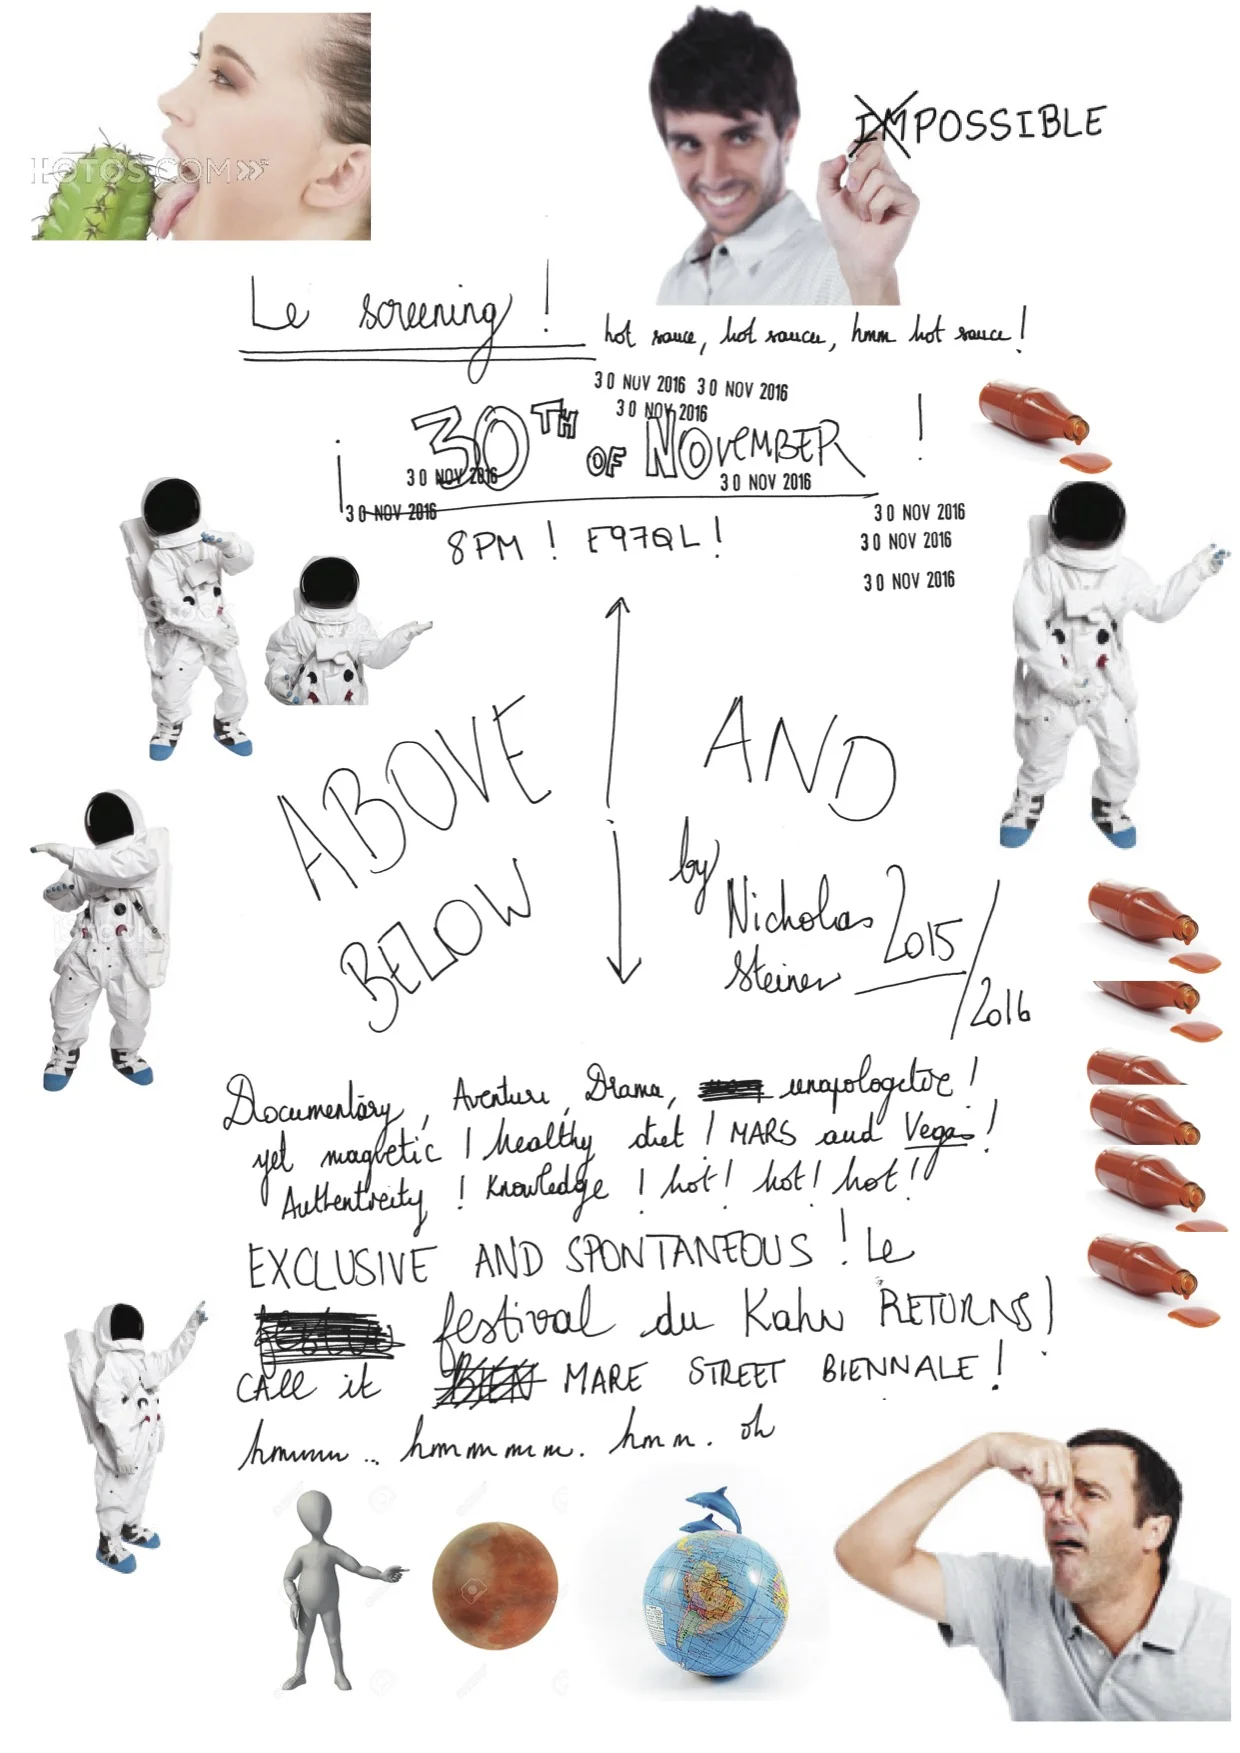 HOTOS.COM»
IMPOSSIBLE
Le screening !
hot sauce, hot sauce, hmm hot sauce !
30 NOV 2016 30 NOV 2016
30 NOV 2016
¡ 30TH OF NOVEMBER !
30 NOV 2016
30 NOV 2016
30 NOV 2016
30 NOV 2016
30 NOV 2016
30 NOV 2016
8PM ! E97QL !
iStock
ABOVE AND
BELOW
by
Nicholas
Steiner 2015/2016
Documentary, Aventure, Drama, unapologetic !
yet magnetic ! healthy diet ! MARS and Vegas !
Authenticity ! Knowledge ! hot ! hot ! hot !
EXCLUSIVE AND SPONTANEOUS ! Le
festival du Kahn RETURNS !
CAll it BIEN MARE STREET BIENNALE !
hmmm... hmmmmm. hmm. oh